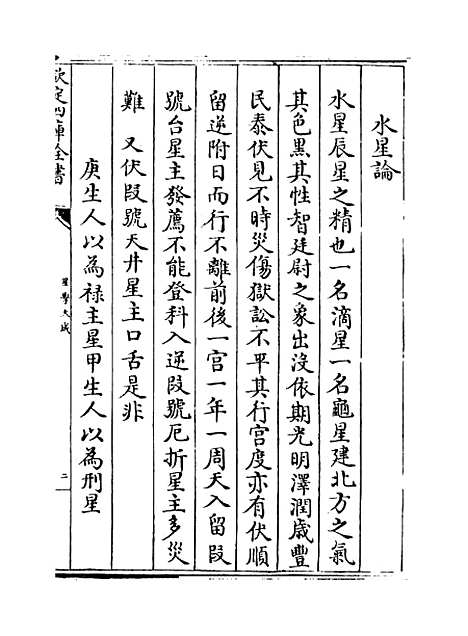 水星論
水星辰星之精也一名滴星一名龜星建北方之氣
其色黑其性智廷尉之象出沒依期光明澤潤歲豐
民泰伏見不時災傷獄訟不平其行宮度亦有伏順
留逆附日而行不離前後一宮一年一周天入留段
號台星主發薦不能登科入逆段號厄折星主多災
難 又伏段號天井星主口舌是非
庚生人以為祿主星甲生人以為刑星
欽定四庫全書
星學大成
二